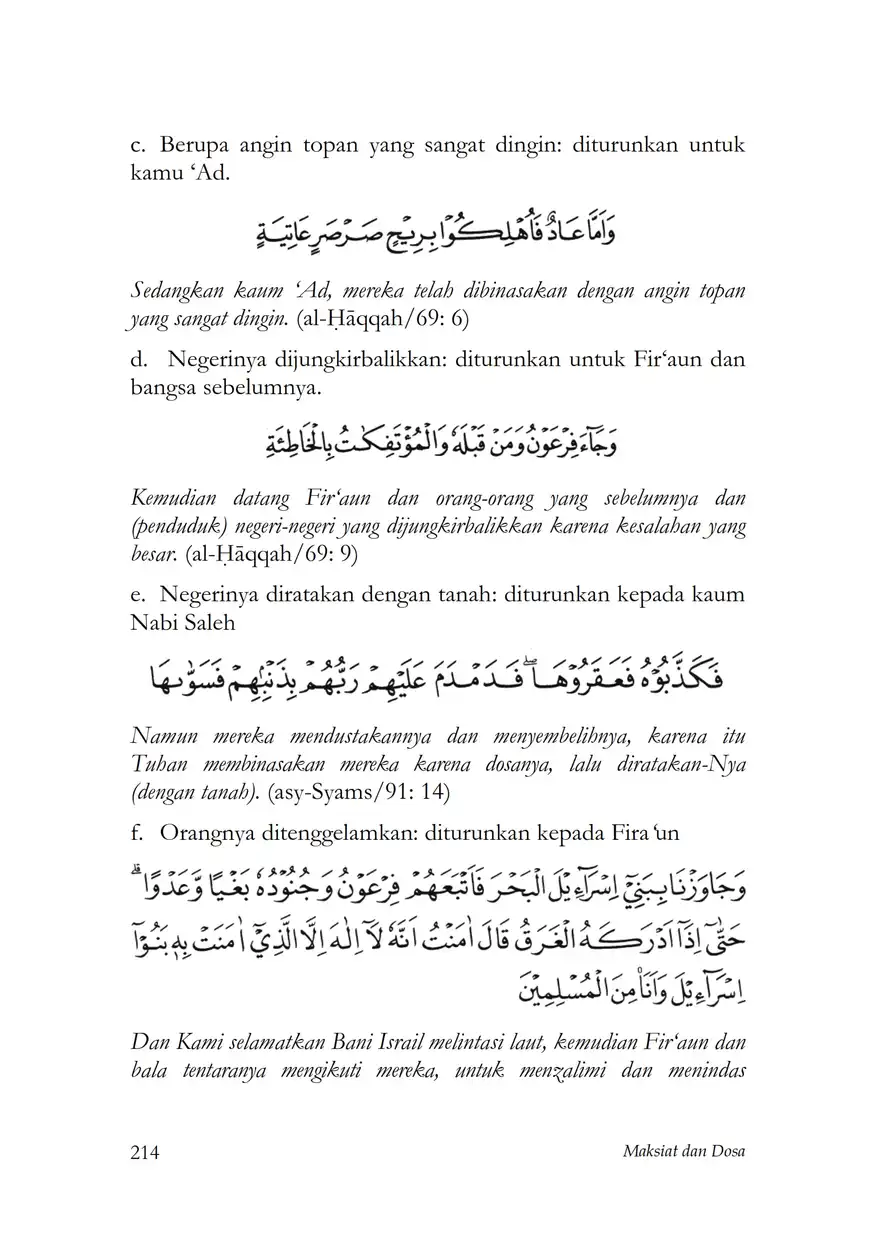 c. Berupa angin topan yang sangat dingin: diturunkan untuk
kamu ‘Ad.
وَاَمَّا عَادٌ فَاُهْلِكُوْا بِرِيْحٍ صَرْصَرٍ عَاتِيَةٍ
Sedangkan kaum ‘Ad, mereka telah dibinasakan dengan angin topan
yang sangat dingin. (al-Ḥāqqah/69: 6)
d. Negerinya dijungkirbalikkan: diturunkan untuk Fir‘aun dan
bangsa sebelumnya.
وَجَاۤءَ فِرْعَوْنُ وَمَنْ قَبْلَهٗ وَالْمُؤْتَفِكٰتُ بِالْخَاطِئَةِ
Kemudian datang Fir‘aun dan orang-orang yang sebelumnya dan
(penduduk) negeri-negeri yang dijungkirbalikkan karena kesalahan yang
besar. (al-Ḥāqqah/69: 9)
e. Negerinya diratakan dengan tanah: diturunkan kepada kaum
Nabi Saleh
فَكَذَّبُوْهُ فَعَقَرُوْهَاۖ فَدَمْدَمَ عَلَيْهِمْ رَبُّهُمْ بِذَنْۢبِهِمْ فَسَوّٰىهَا
Namun mereka mendustakannya dan menyembelihnya, karena itu
Tuhan membinasakan mereka karena dosanya, lalu diratakan-Nya
(dengan tanah). (asy-Syams/91: 14)
f. Orangnya ditenggelamkan: diturunkan kepada Fira‘un
وَجَاوَزْنَا بِبَنِيْٓ اِسْرَاۤءِيْلَ الْبَحْرَ فَاَتْبَعَهُمْ فِرْعَوْنُ وَجُنُوْدُهٗ بَغْيًا وَّعَدْوًاۗ
حَتّٰىٓ اِذَآ اَدْرَكَهُ الْغَرَقُ قَالَ اٰمَنْتُ اَنَّهٗ لَآ اِلٰهَ اِلَّا الَّذِيْٓ اٰمَنَتْ بِهٖ بَنُوْٓا
اِسْرَاۤءِيْلَ وَاَنَا۠ مِنَ الْمُسْلِمِيْنَ
Dan Kami selamatkan Bani Israil melintasi laut, kemudian Fir‘aun dan
bala tentaranya mengikuti mereka, untuk menzalimi dan menindas
214 Maksiat dan Dosa